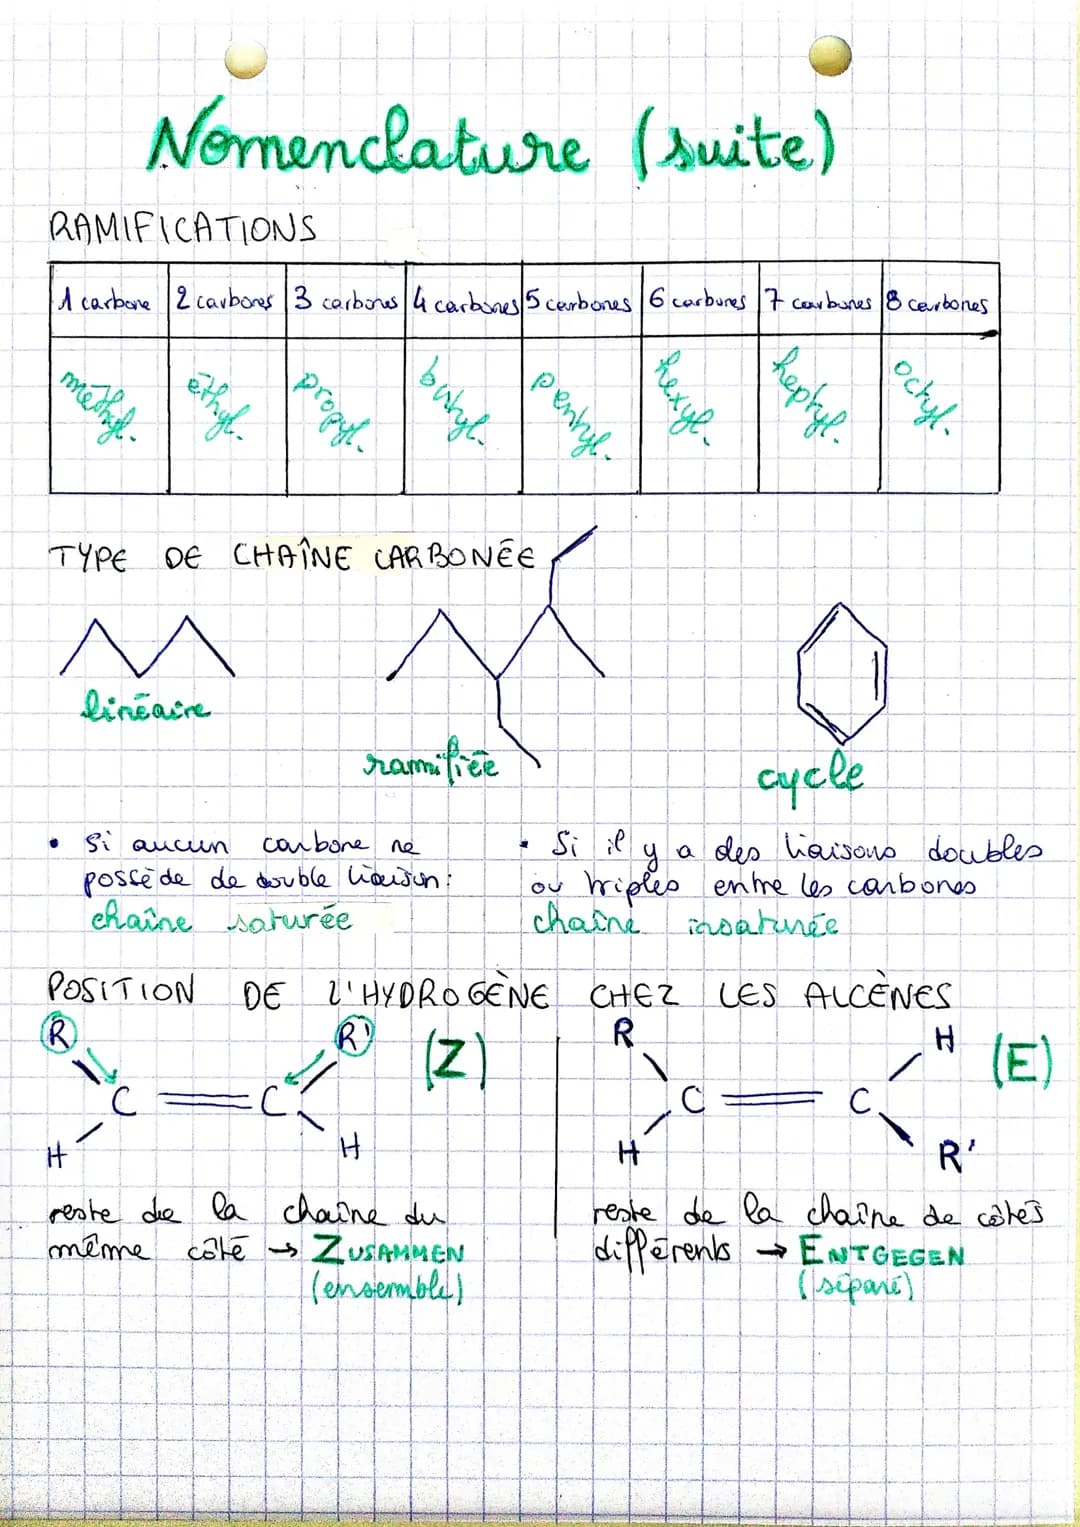 Nomenclature (suite)
RAMIFICATIONS
1 carbone 2 carbones 3 carbones 4 carbones 5 carbones 6 carbones 7 carbones 8 carbones
méthyl. éthyl. propyl. butyl. penthyl. hexyl. heptyl. octyl.
TYPE DE CHAÎNE CARBONÉE
linéaire
ramifiée
cycle
• Si aucun carbone ne
possède de double liaison:
chaîne saturée
• Si il y a des liaisons doubles
ou triples entre les carbones
chaîne insaturée
POSITION DE L'HYDROGÈNE CHEZ LES ALCÈNES
R R' (Z)
C C
H H
reste de la chaîne du
même côté → ZUSAMMEN
(ensemble)
R H (E)
C C
H R'
reste de la chaîne de côtés
différents → ENTGEGEN
(séparé)